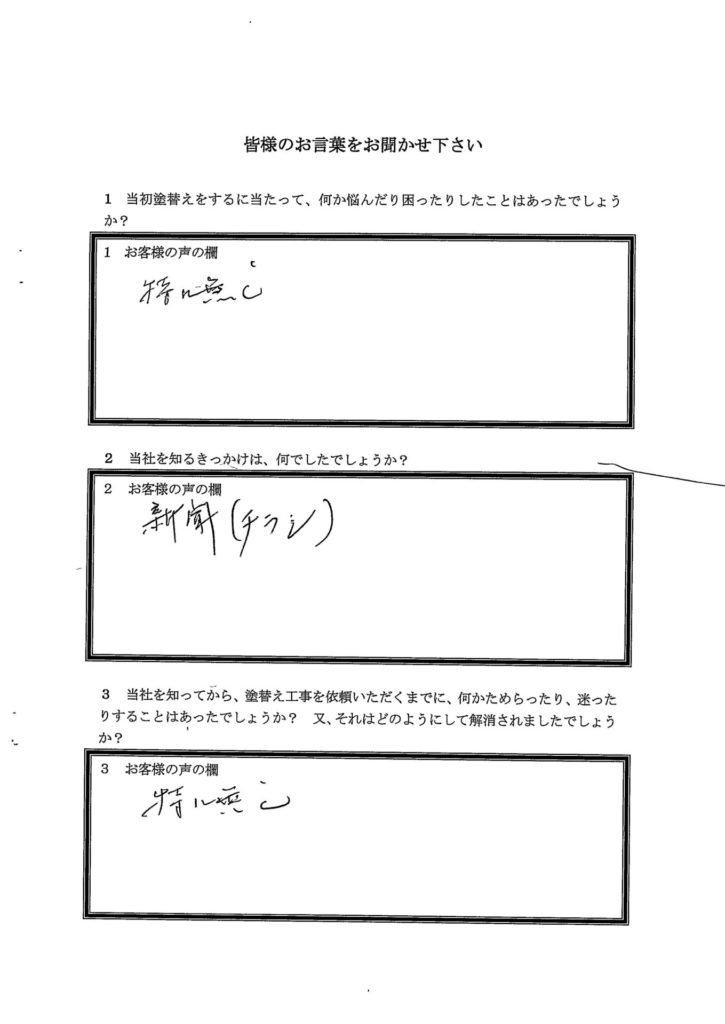 皆様のお言葉をお聞かせ下さい
1　当初塗替えをするに当たって、何か悩んだり困ったりしたことはあったでしょう
か？
1　お客様の声の欄
特に無し
2　当社を知るきっかけは、何でしたでしょうか？
2　お客様の声の欄
新聞(チラシ)
3　当社を知ってから、塗替え工事を依頼いただくまでに、何かためらったり、迷った
りすることはあったでしょうか？　又、それはどのようにして解消されましたでしょう
か？
3　お客様の声の欄
特に無し